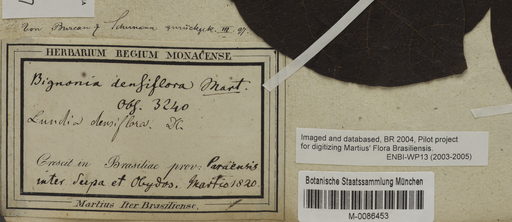 Von Bureau & Schumann zurückgek. III. 97.
HERBARIUM REGIUM MONACENSE.
Bignonia densiflora Mart.
Obs. 3240
Lundia densiflora. DC.
Crescit in Brasiliae prov: Paraensis
inter Serpa et Obydos. Martio 1820.
Martius Iter Brasiliense.
Imaged and databased, BR 2004, Pilot project
for digitizing Martius' Flora Brasiliensis.
ENBI-WP13 (2003-2005)
Botanische Staatssammlung München
M-0086453